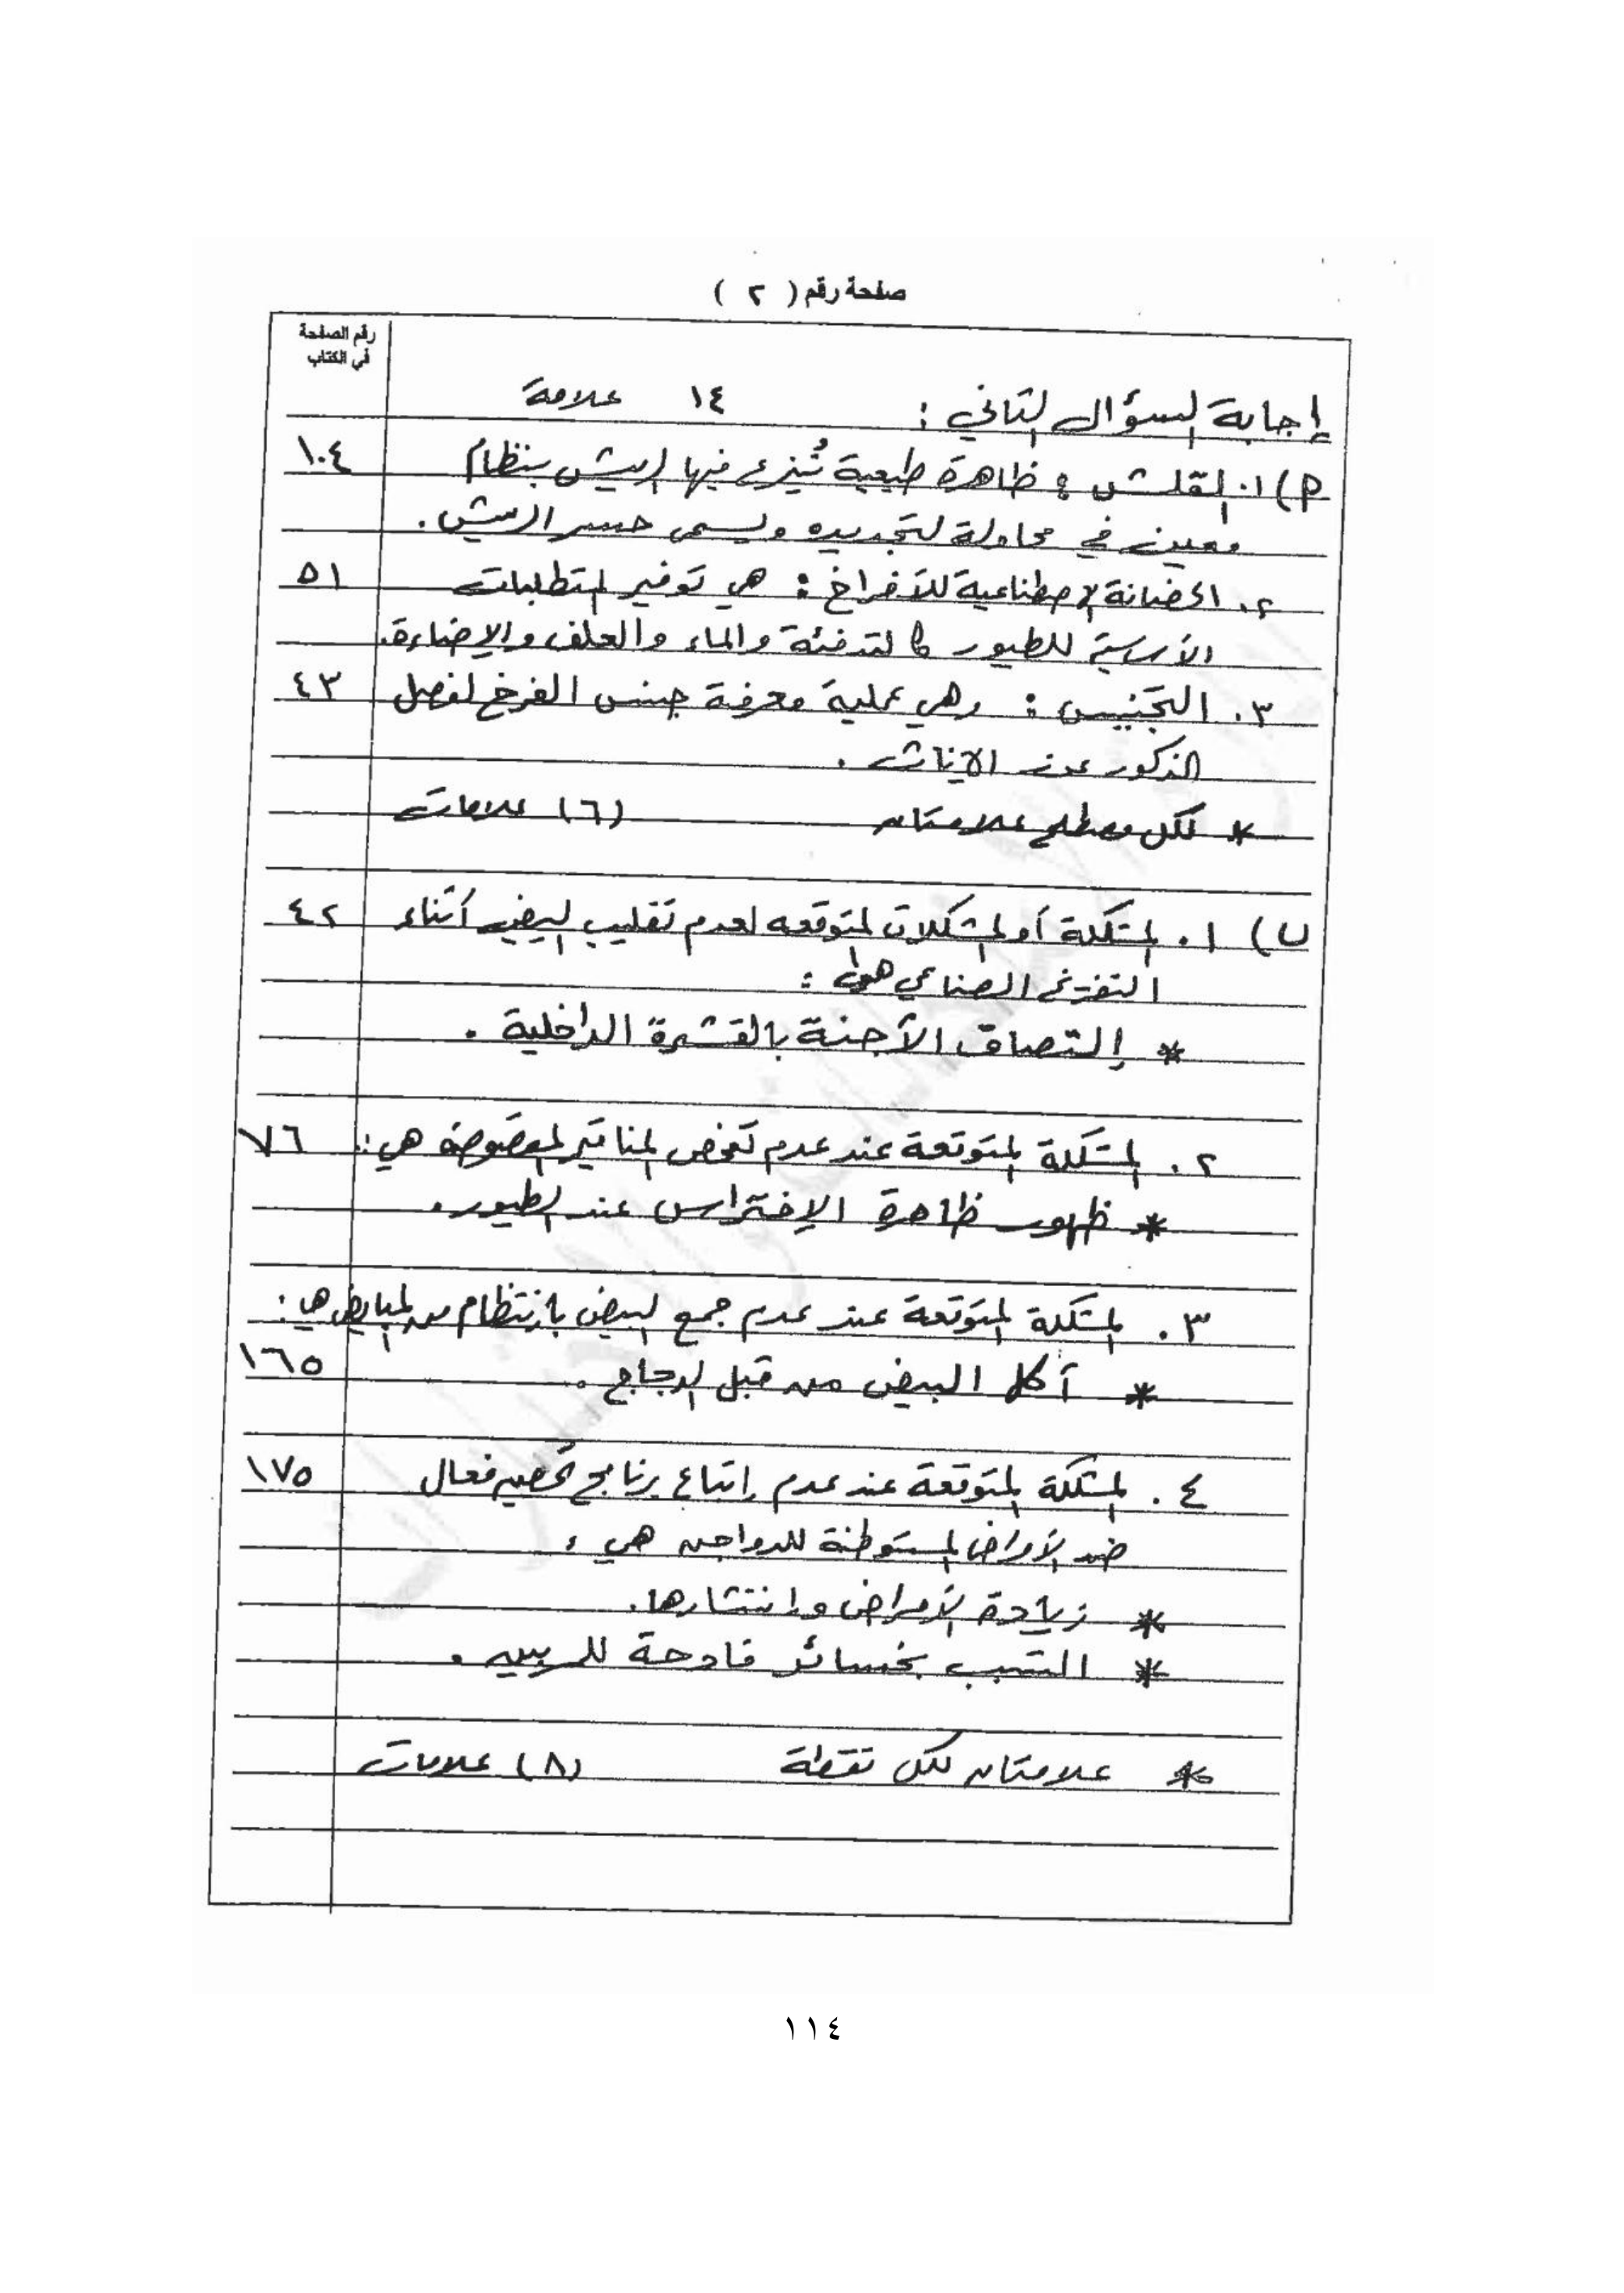 صفحة رقم ( ٢ )
رقم الصفحة
في الكتاب
إجابة السؤال الثاني : ١٤ علامة
أ) ١. القلش : ظاهرة طبيعية تُنزع فيها الريش بنظام ١٠٤
معين في محاولة لتجديده ويسمى حسر الريش .
٢. الحضانة الإصطناعية للأفراخ : هي توفير المتطلبات ٥١
الأساسية للطيور كالتدفئة والماء والعلف والإضاءة.
٣. التجنيس : وهي عملية معرفة جنس الفرخ لفصل ٤٣
الذكور عن الاناث .
* لكل مصطلح علامتان (٦) علامات
ب) ١. المشكلة أو المشكلات المتوقعه لعدم تقليب البيض أثناء ٤٢
التفريخ الصناعي هي :
* إلتصاق الأجنة بالقشرة الداخلية .
٢. المشكلة المتوقعة عند عدم تفحص المناقير المقصوصة هي : ٧٦
* ظهور ظاهرة الإفتراس عند الطيور.
٣. المشكلة المتوقعة عند عدم جمع البيض بإنتظام من المبايض هي :
* أكل البيض من قبل الدجاج . ١٦٥
٤. المشكلة المتوقعة عند عدم إتباع برنامج تحصين فعال ١٧٥
ضد الأمراض المستوطنة للدواجن هي :
* زيادة الأمراض وإنتشارها.
* التسبب بخسائر فادحة للمربين .
* علامتان لكل نقطة (٨) علامات
١١٤